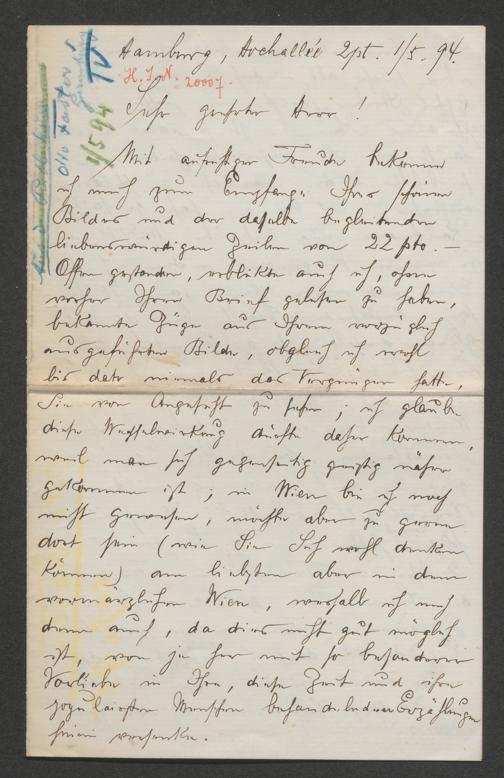 Hamburg, Hochallée 2pt. 1/5. 94.
H. I. N. 20007.
IV
Otto
1/5 94
Sehr geehrter Herr!
Mit aufrichtiger Freude bekenne
ich mich zum Empfange Ihres schönen
Bildes und der dasselbe begleitenden
liebenswürdigen Zeilen von 22 pto. –
Offen gestanden, erblickte auch ich, ohne
vorher Ihren Brief gelesen zu haben,
bekannte Züge aus Ihrem vorzüglich
ausgeführten Bilde, obgleich ich wohl
bis dato niemals das Vergnügen hatte,
Sie von Angesicht zu sehen; ich glaube
diese Wechselwirkung dürfte daher kommen,
weil man sich gegenseitig geistig näher
gekommen ist; in Wien bin ich noch
nicht gewesen, möchte aber zu gerne
dort sein (wie Sie Sich wohl denken
können) am liebsten aber in dem
vormärzlichen Wien, weshalb ich mich
denn auch, da dies nicht gut möglich
ist, von je her mit so besonderer
Vorliebe in Ihre, diese Zeit und ihre
Menschen behandelnden Erzählungen
hinein versenke.